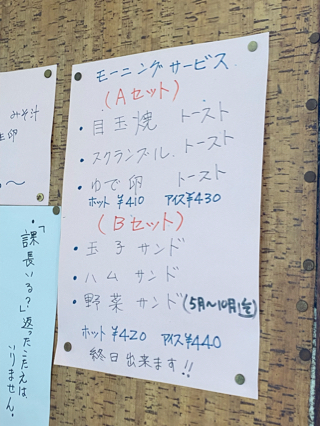 モーニングサービス
(Aセット)
・目玉焼 トースト
・スクランブル. トースト
・ゆで卵 トースト
ホット ¥410 アイス¥430
(Bセット)
・玉子 サンド
・ハム サンド
・野菜 サンド(5月〜10月迄)
ホット ¥420 アイス¥440
終日出来ます!!
みそ汁
卵
〜
・「課長いる?」返ったこたえは
いりません。